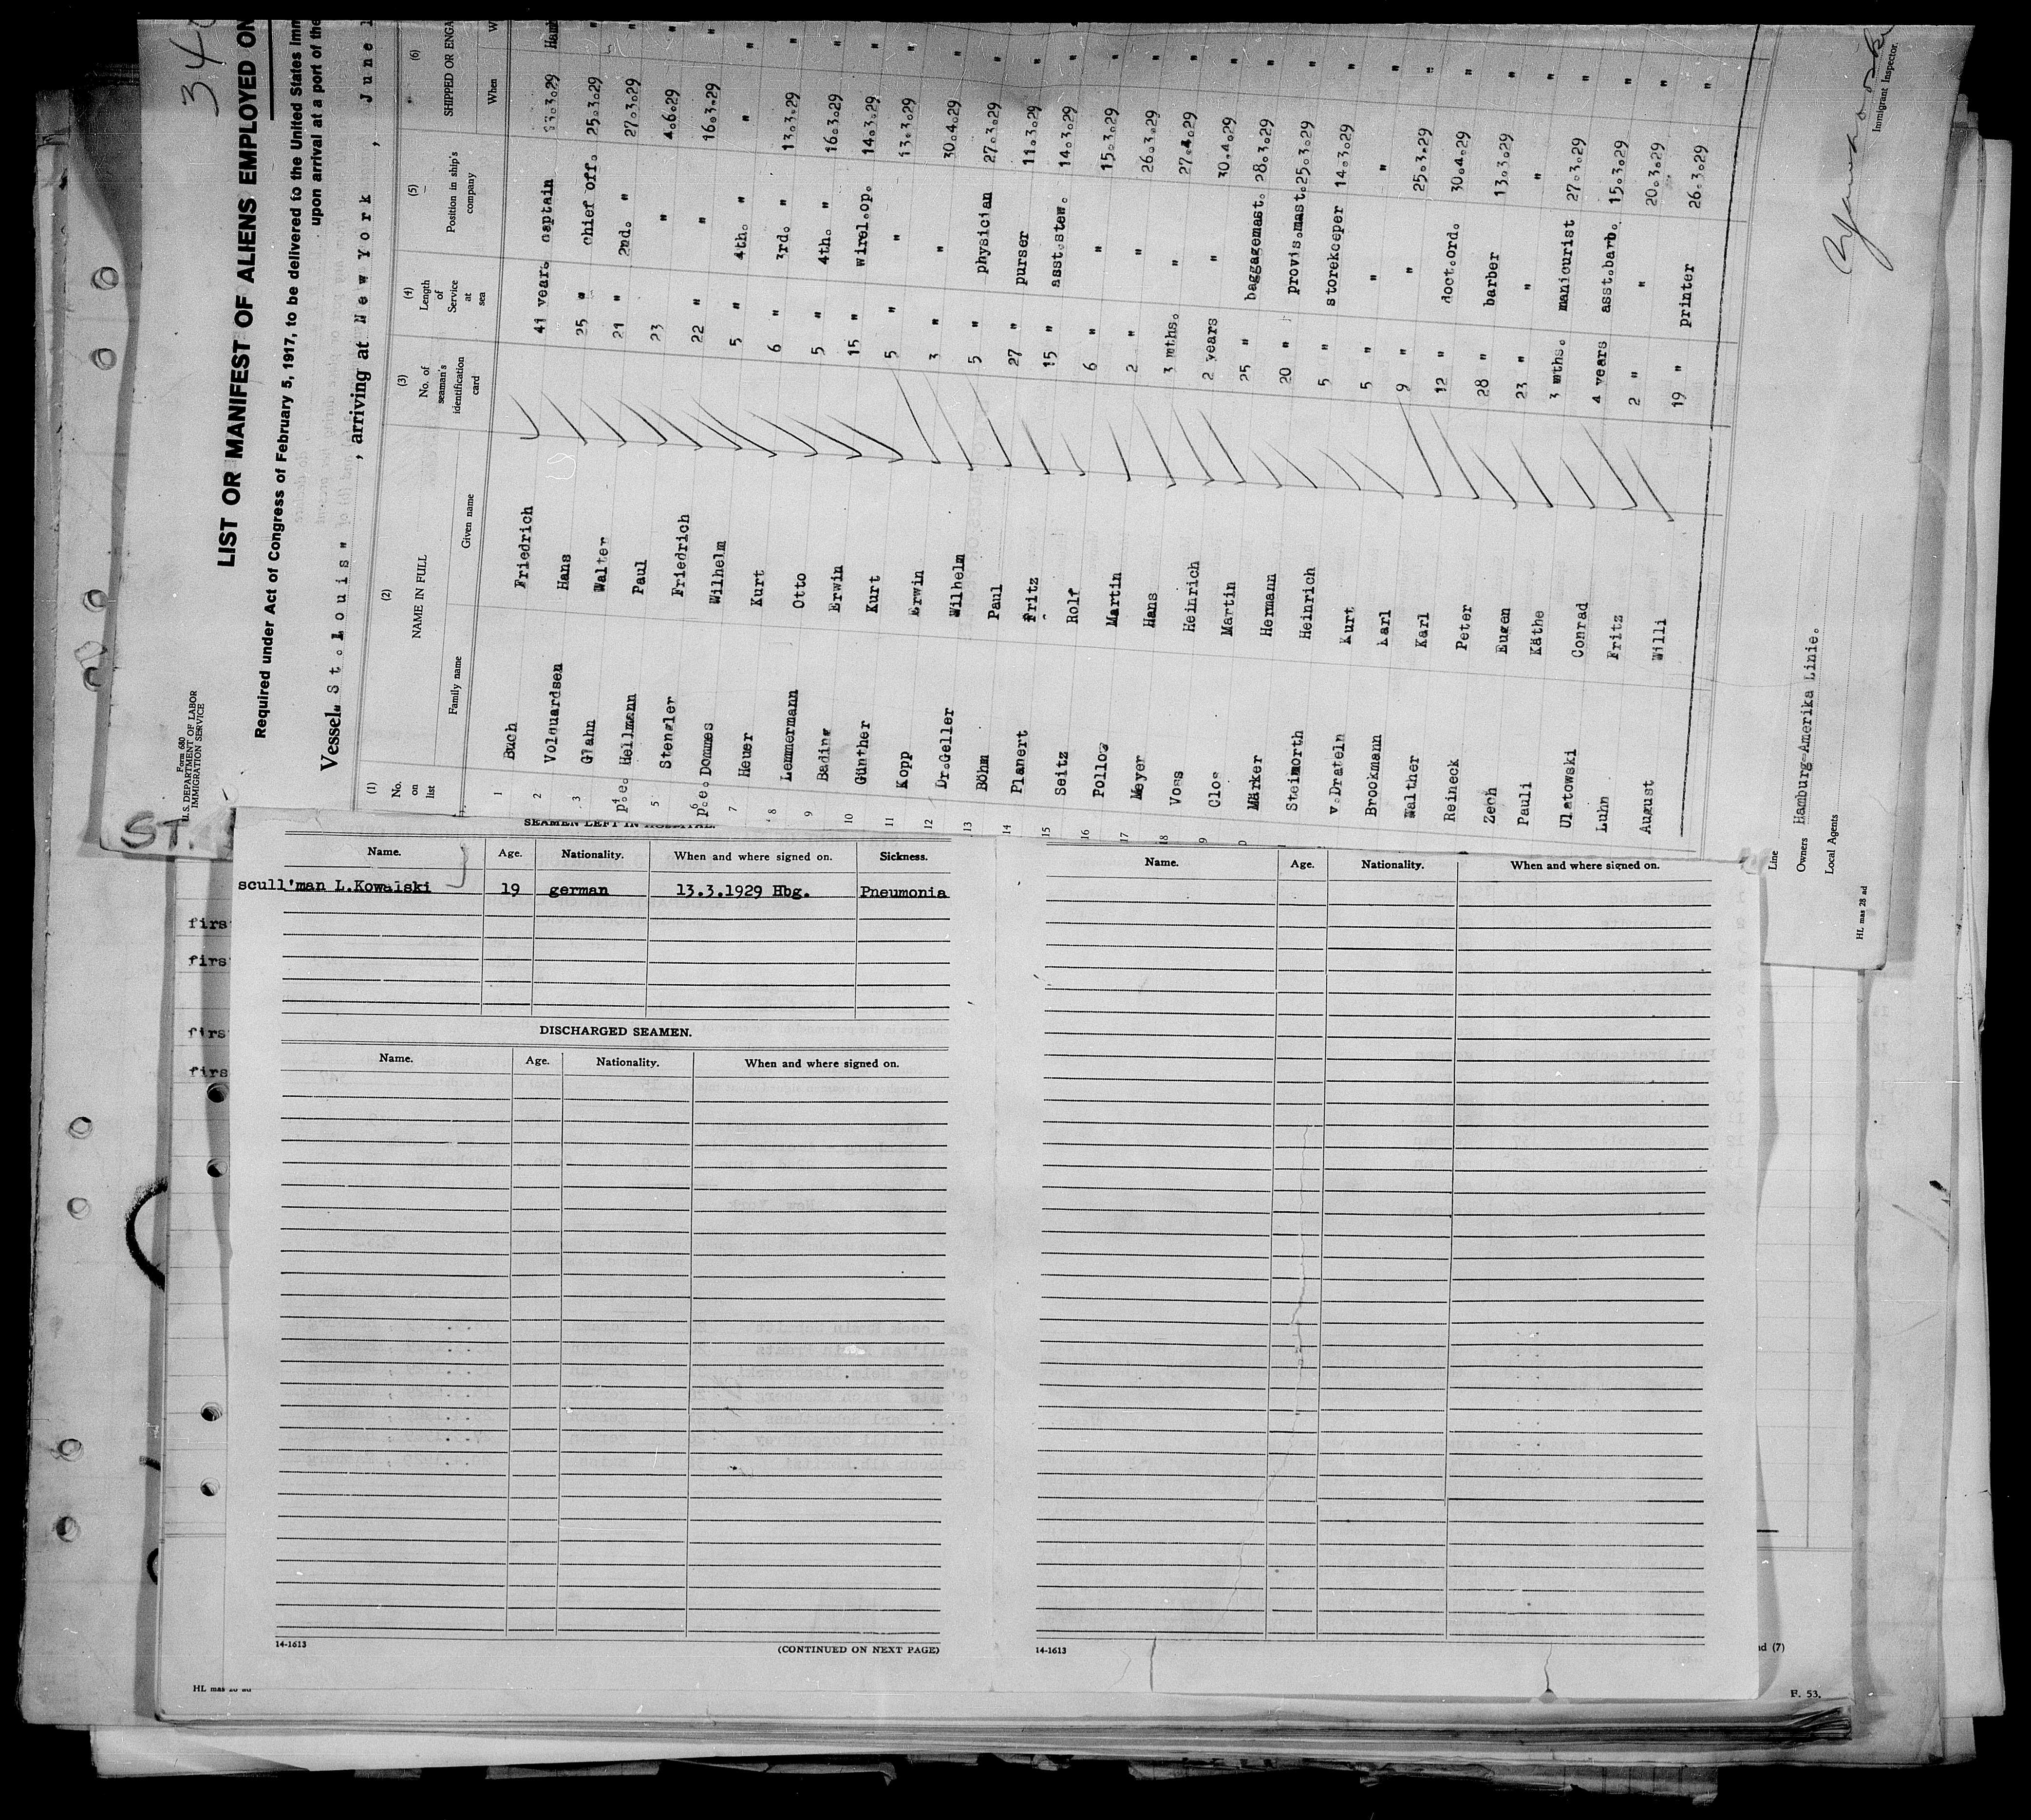 340
Form 680
U.S. DEPARTMENT OF LABOR
IMMIGRATION SERVICE
LIST OR MANIFEST OF ALIENS EMPLOYED ON
Required under Act of Congress of February 5, 1917, to be delivered to the United States Imm
upon arrival at a port of the
Vessel "St.Louis" , arriving at New York , June 1
(1) (2) (3) (4) (5) (6)
No. on list NAME IN FULL Family name Given name No. of seaman's identification card Length of Service at sea Position in ship's company SHIPPED OR ENGA When W
1 Buch Friedrich 41 years captain 13.3.29 Hamb
2 Volquardsen Hans 25 " chief off. 25.3.29 "
3 Glahn Walter 21 " 2nd. " 27.3.29 "
p.e. 4 Hellmann Paul 23 " 4.6.29 "
5 Stengler Friedrich 22 " " 16.3.29 "
p.e. 6 Dommes Wilhelm 5 " 4th. " " "
7 Heuer Kurt 6 " 3rd. " 13.3.29 "
8 Lemmermann Otto 5 " 4th. " 16.3.29 "
9 Bading Erwin 15 " wirel.op. 14.3.29 "
10 Günther Kurt 5 " " 13.3.29 "
11 Kopp Erwin 3 " " 30.4.29 "
12 Dr.Geller Wilhelm 5 " physician 27.3.29 "
13 Böhm Paul 27 " purser 11.3.29 "
14 Planert Fritz 15 " asst.stew. 14.3.29 "
15 Seitz Rolf 6 " " 15.3.29 "
16 Pollog Martin 2 " " 26.3.29 "
17 Meyer Hans 3 mths. " 27.4.29 "
18 Voss Heinrich 2 years " 30.4.29 "
9 Clos Martin 25 " baggagemast. 28.3.29 "
0 Märker Hermann 20 " provis.mast. 25.3.29 "
Steimorth Heinrich 5 " storekeeper 14.3.29 "
v.Drateln Kurt 5 " " " "
Brookmann Karl 9 " " 25.3.29 "
Walther Karl 12 " doct.ord. 30.4.29 "
Reineck Peter 28 " barber 13.3.29 "
Zech Eugen 23 " " " "
Pauli Käthe 3 mths. manicurist 27.3.29 "
Ulatowski Conrad 4 years asst.barb. 15.3.29 "
Luhn Fritz 2 " " 20.3.29 "
August Willi 19 " printer 26.3.29 "
Line
Owners Hamburg-Amerika Linie.
Local Agents
Immigrant Inspector.
HL mas 28 ad
ST.
SEAMEN LEFT IN HOSPITAL.
Name. Age. Nationality. When and where signed on. Sickness.
scull'man L.Kowalski 19 german 13.3.1929 Hbg. Pneumonia
DISCHARGED SEAMEN.
Name. Age. Nationality. When and where signed on.
14-1613 (CONTINUED ON NEXT PAGE)
Name. Age. Nationality. When and where signed on.
14-1613
first
first
first
first
nd (7)
HL mas 28 ad
F. 53.